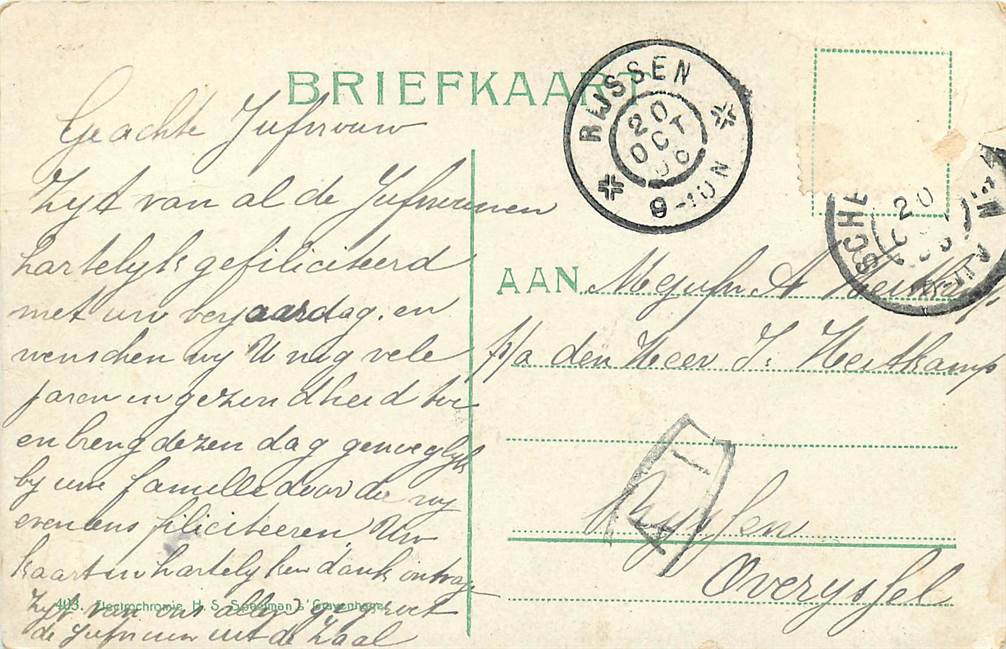 BRIEFKAART
RIJSSEN
20
OCT
9-10 N
SCHE
20
Geachte Jufvrouw
Zyt van al de Jufvrouwen
hartelyk gefiliciteerd
met uw verjaardag, en
wenschen wy U nog vele
jaren in gezondheid toe
en breng dezen dag genoeglyk
by uwe familie door die wy
eveneens filiciteeren. Uw
kaart in hartelyken dank ontvang
Zyt van ons allen gegroet
de Jufvrouw uit de Zaal
AAN Mejufr A
p/a den Heer J. Heutkamp
Ryssen
Overyssel
403. Electrochromie H. S. Speelman s' Gravenhage